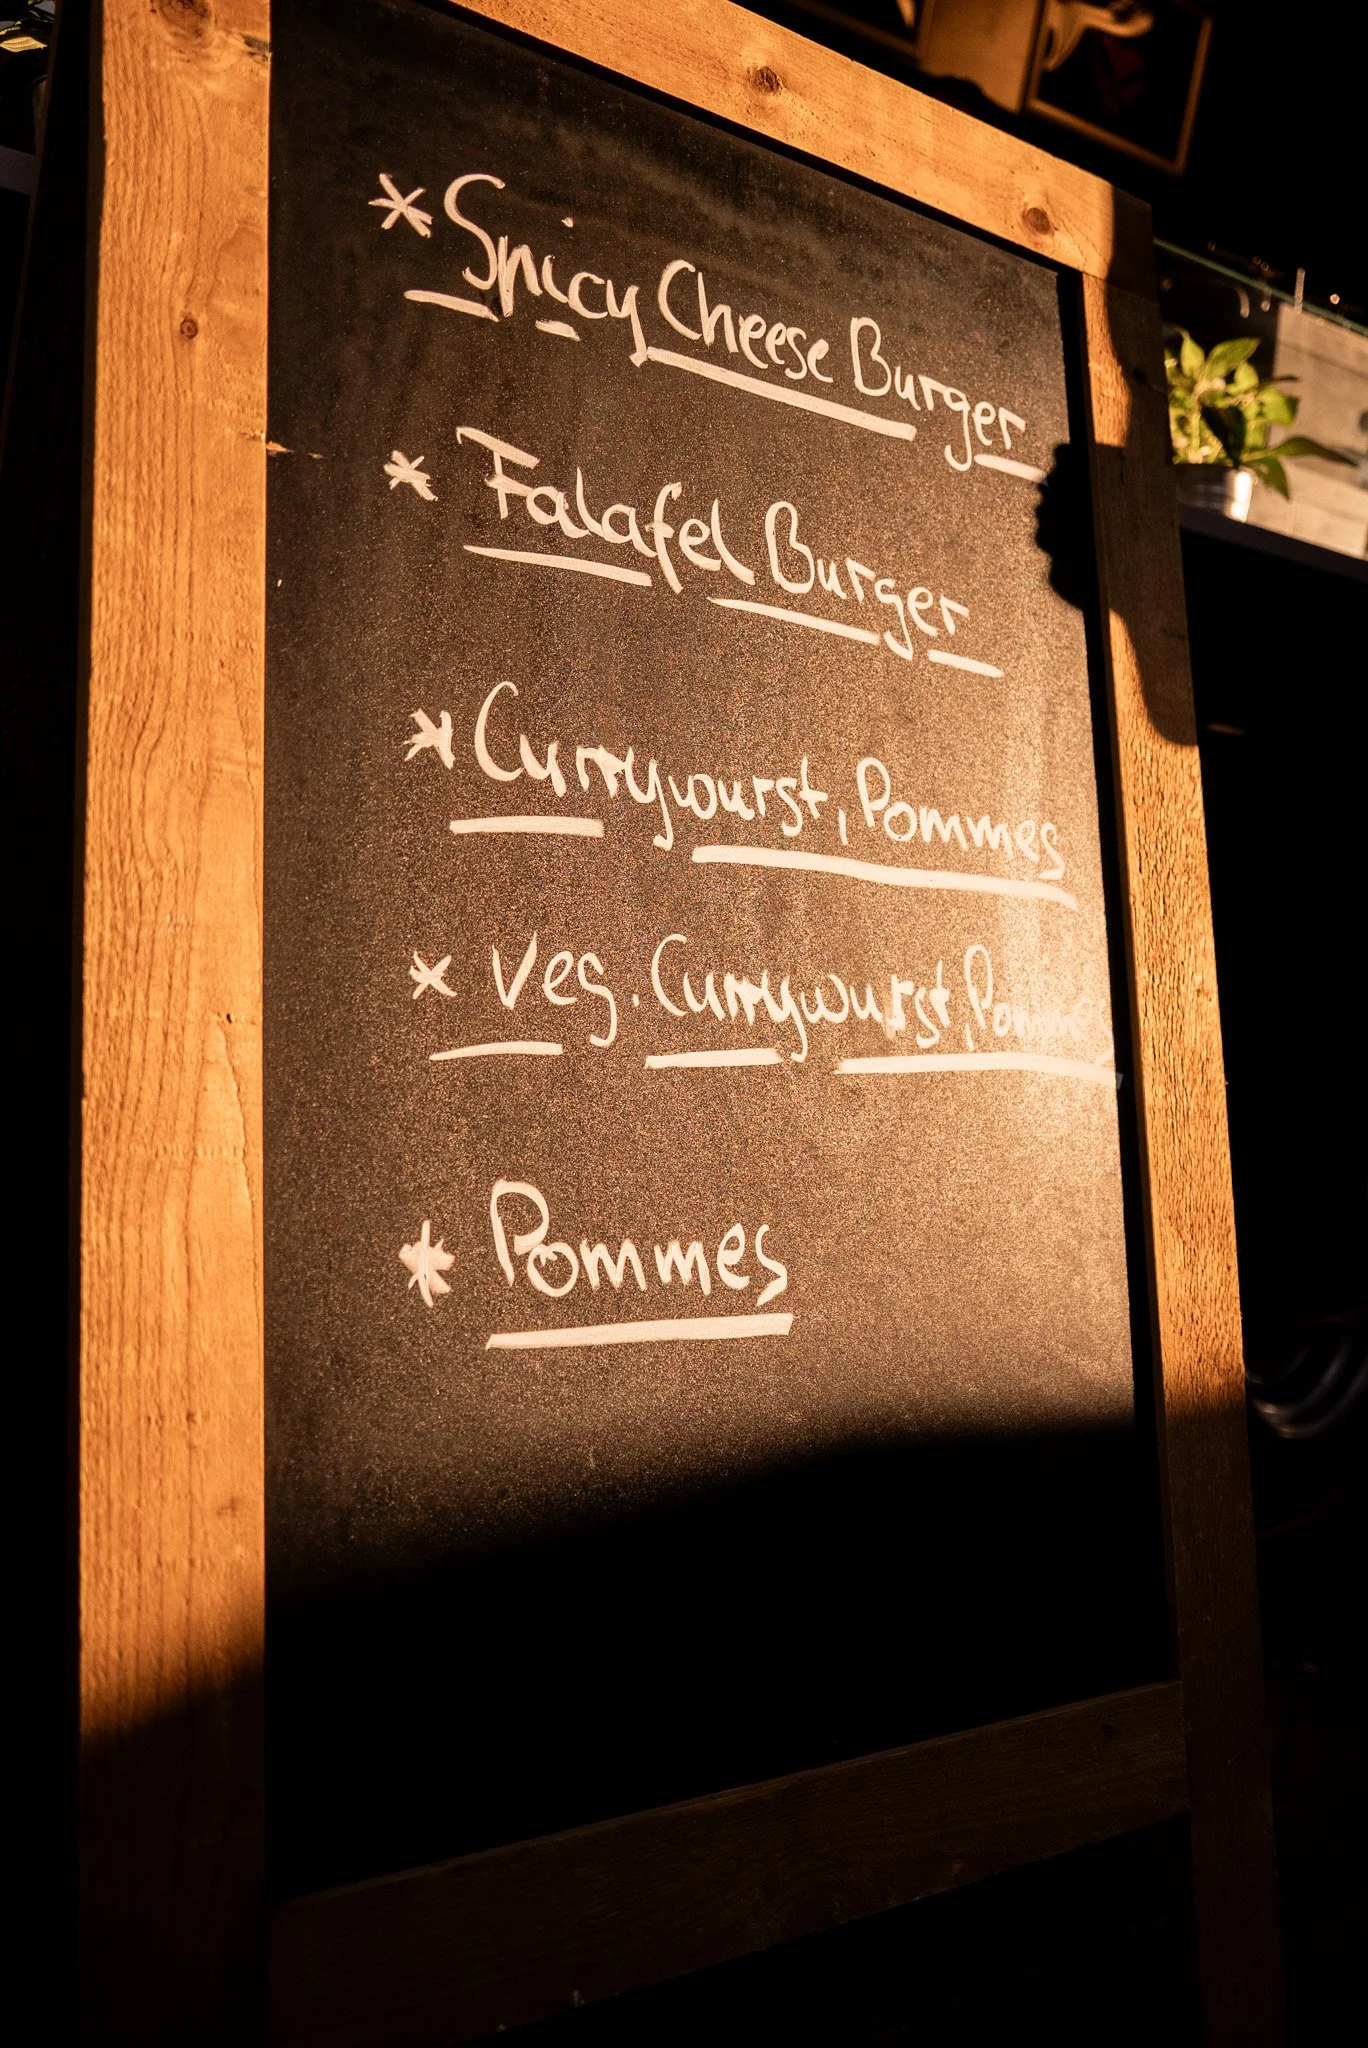 * Spicy Cheese Burger
* Falafel Burger
* Currywurst, Pommes
* Veg. Currywurst, Pommes
* Pommes